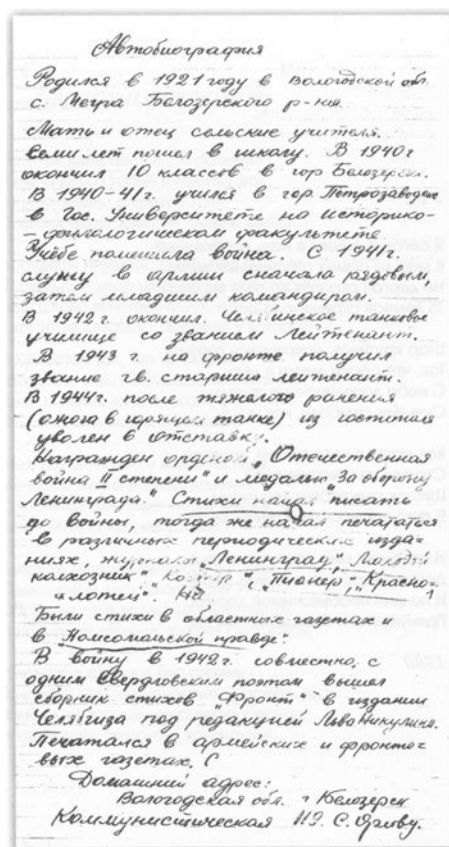 Автобиография
Родился в 1921 году в Вологодской обл.
с. Мегра Белозерского р-на.
Мать и отец сельские учителя.
Семи лет пошел в школу. В 1940 г
окончил 10 классов в гор Белозерск.
В 1940-41 г. учился в гор. Петрозаводск
в Гос. Университете на историко-
-филологическом факультете.
Учёбе помешала война. С 1941 г.
служу в армии сначала рядовым,
затем младшим командиром.
В 1942 г. окончил Челябинское танковое
училище со званием Лейтенант.
В 1943 г. на фронте получил
звание гв. старший лейтенант.
В 1944 г. после тяжолого ранения
(ожога в горящем танке) из госпиталя
уволен в отставку.
Награжден орденом „Отечественная
война II степени" и медалью „За оборону
Ленинграда." Стихи начал писать
до войны, тогда же начал печататься
в различных периодических изда-
ниях, журналы „Ленинград", Молодой
колхозник", „Костер", „Пионер", „Красно-
флотец".
Были стихи в областных газетах и
в „Комсомольской правде".
В войну в 1942 г. совместно с
одним Свердловским поэтом вышел
сборник стихов „Фронт" в издании
Челябгиза под редакцией Льва Никулина.
Печатался в армейских и фронто-
вых газетах. С
Домашний адрес:
Вологодская обл. г Белозерск
Коммунистическая С. Орлову.